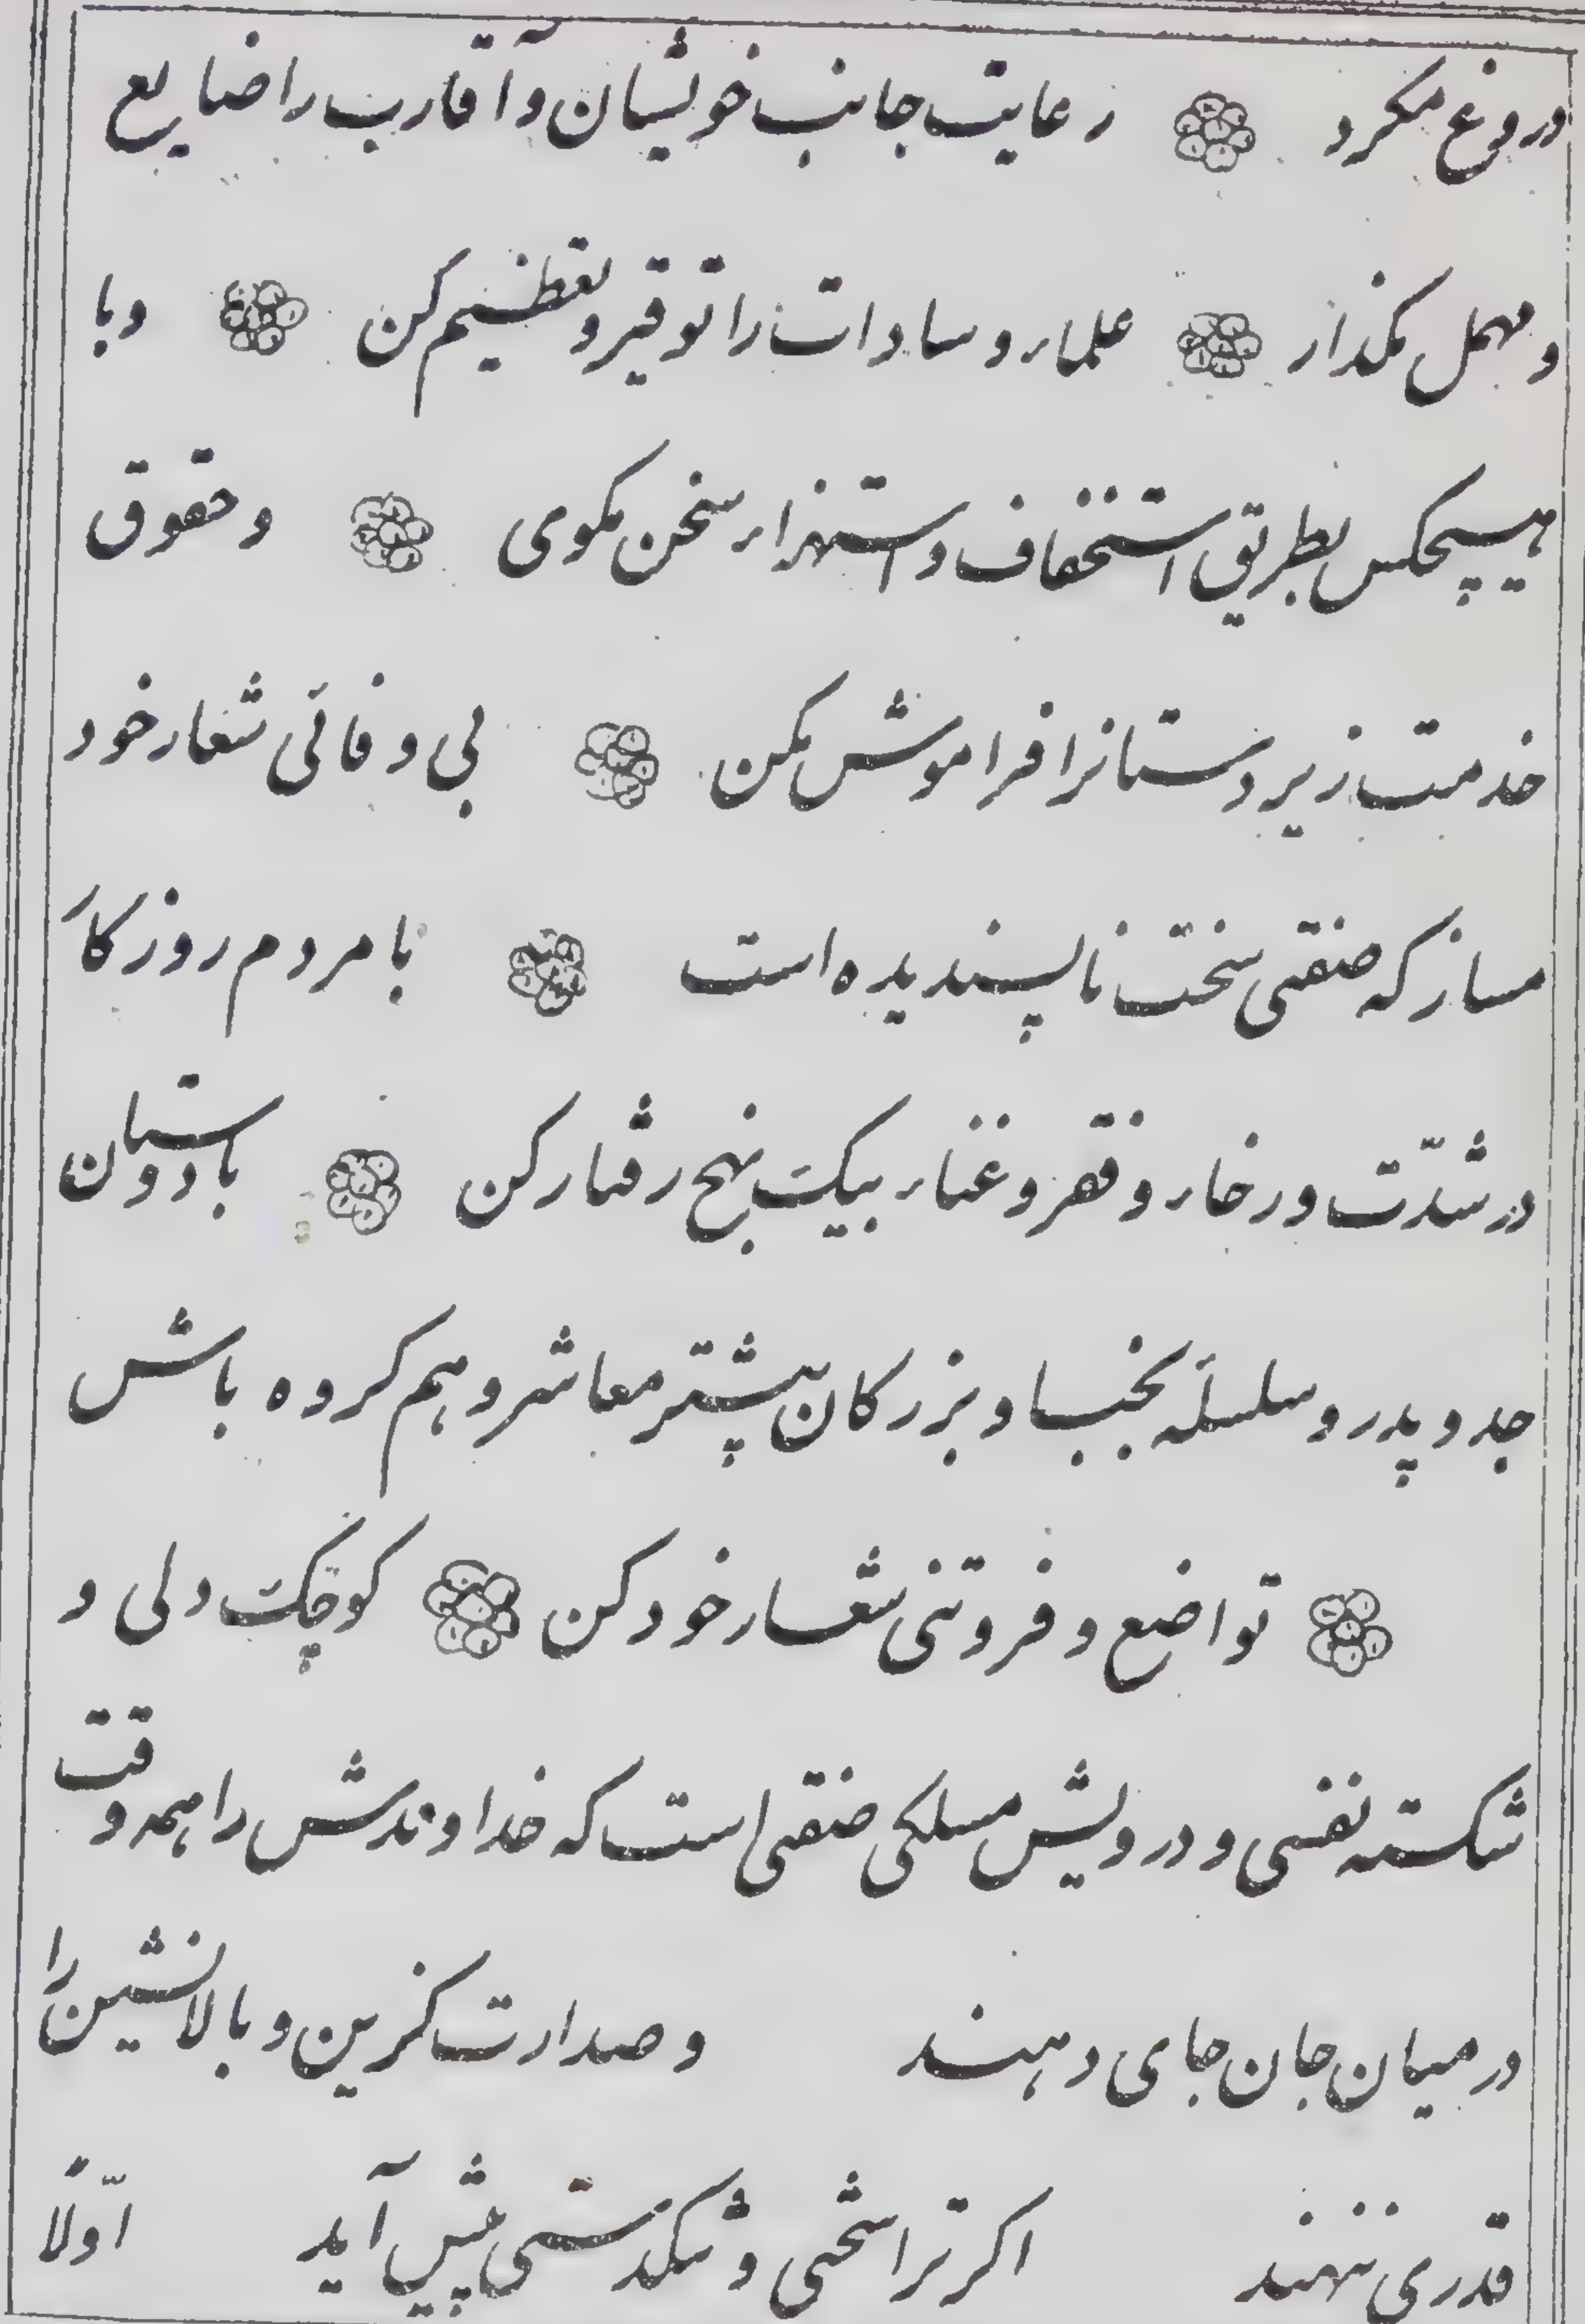 دروغ مگرد رعایت جانب خویشان و آقارب را ضایع
و مهمل مگذار علماء و سادات را توقیر و تعظیم کن و با
هیچکس بطریق استخفاف و استهزاء سخن مکوی و حقوق
خدمت زیردستانرا فراموش مکن بی وفائی شعار خود
مساز که صفتی سخت ناپسندیده است با مردم روزکار
در شدّت و رخاء و فقر و غناء بیک نهج رفتار کن با دوستان
جد و پدر و سلسلهٔ نجبا و بزرکان پیشتر معاشر و هم کروه باش
تواضع و فروتنی شعار خود کن کوچک دلی و
شکسته نفسی و درویش مسلکی صفتی است که خداوندش را همه وقت
در میان جان جای دهند و صدارت کزین و بالانشین را
قدری ننهند اکر ترا سختی و تنکدستی پیش آید اوّلاً